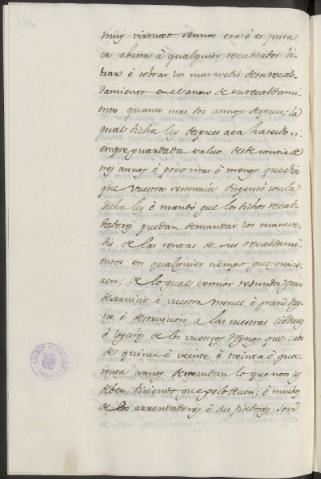 muy virtuoso sennor era è es
à qualquier recabdador
è cobrar los maravedis de su recab-
damiento en el anno de su recabdami-
ento quanto mas los annos despues; la
qual dicha ley despues aca ha seido si-
empre guardada salvo deste
tres annos è poco mas è menos
que vuestra sennoria con la
dicha ley è mandò que los dichos recab-
dadores puedan demandar los marave-
dis de las rentas de sus recabdami-
entos en qualquier tiempo que quisie-
sen; de lo qual sennor redunda gran
deservicio à vuestra merced è grand
è destruicion à las vuestras cibdades
è logares de los vuestros regnos que
de quince è veinte è treinta è qua-
renta annos demandan lo que non les
deben, diciendo que gelo deven; è muchos
de los arrendadores è sus fiadores son